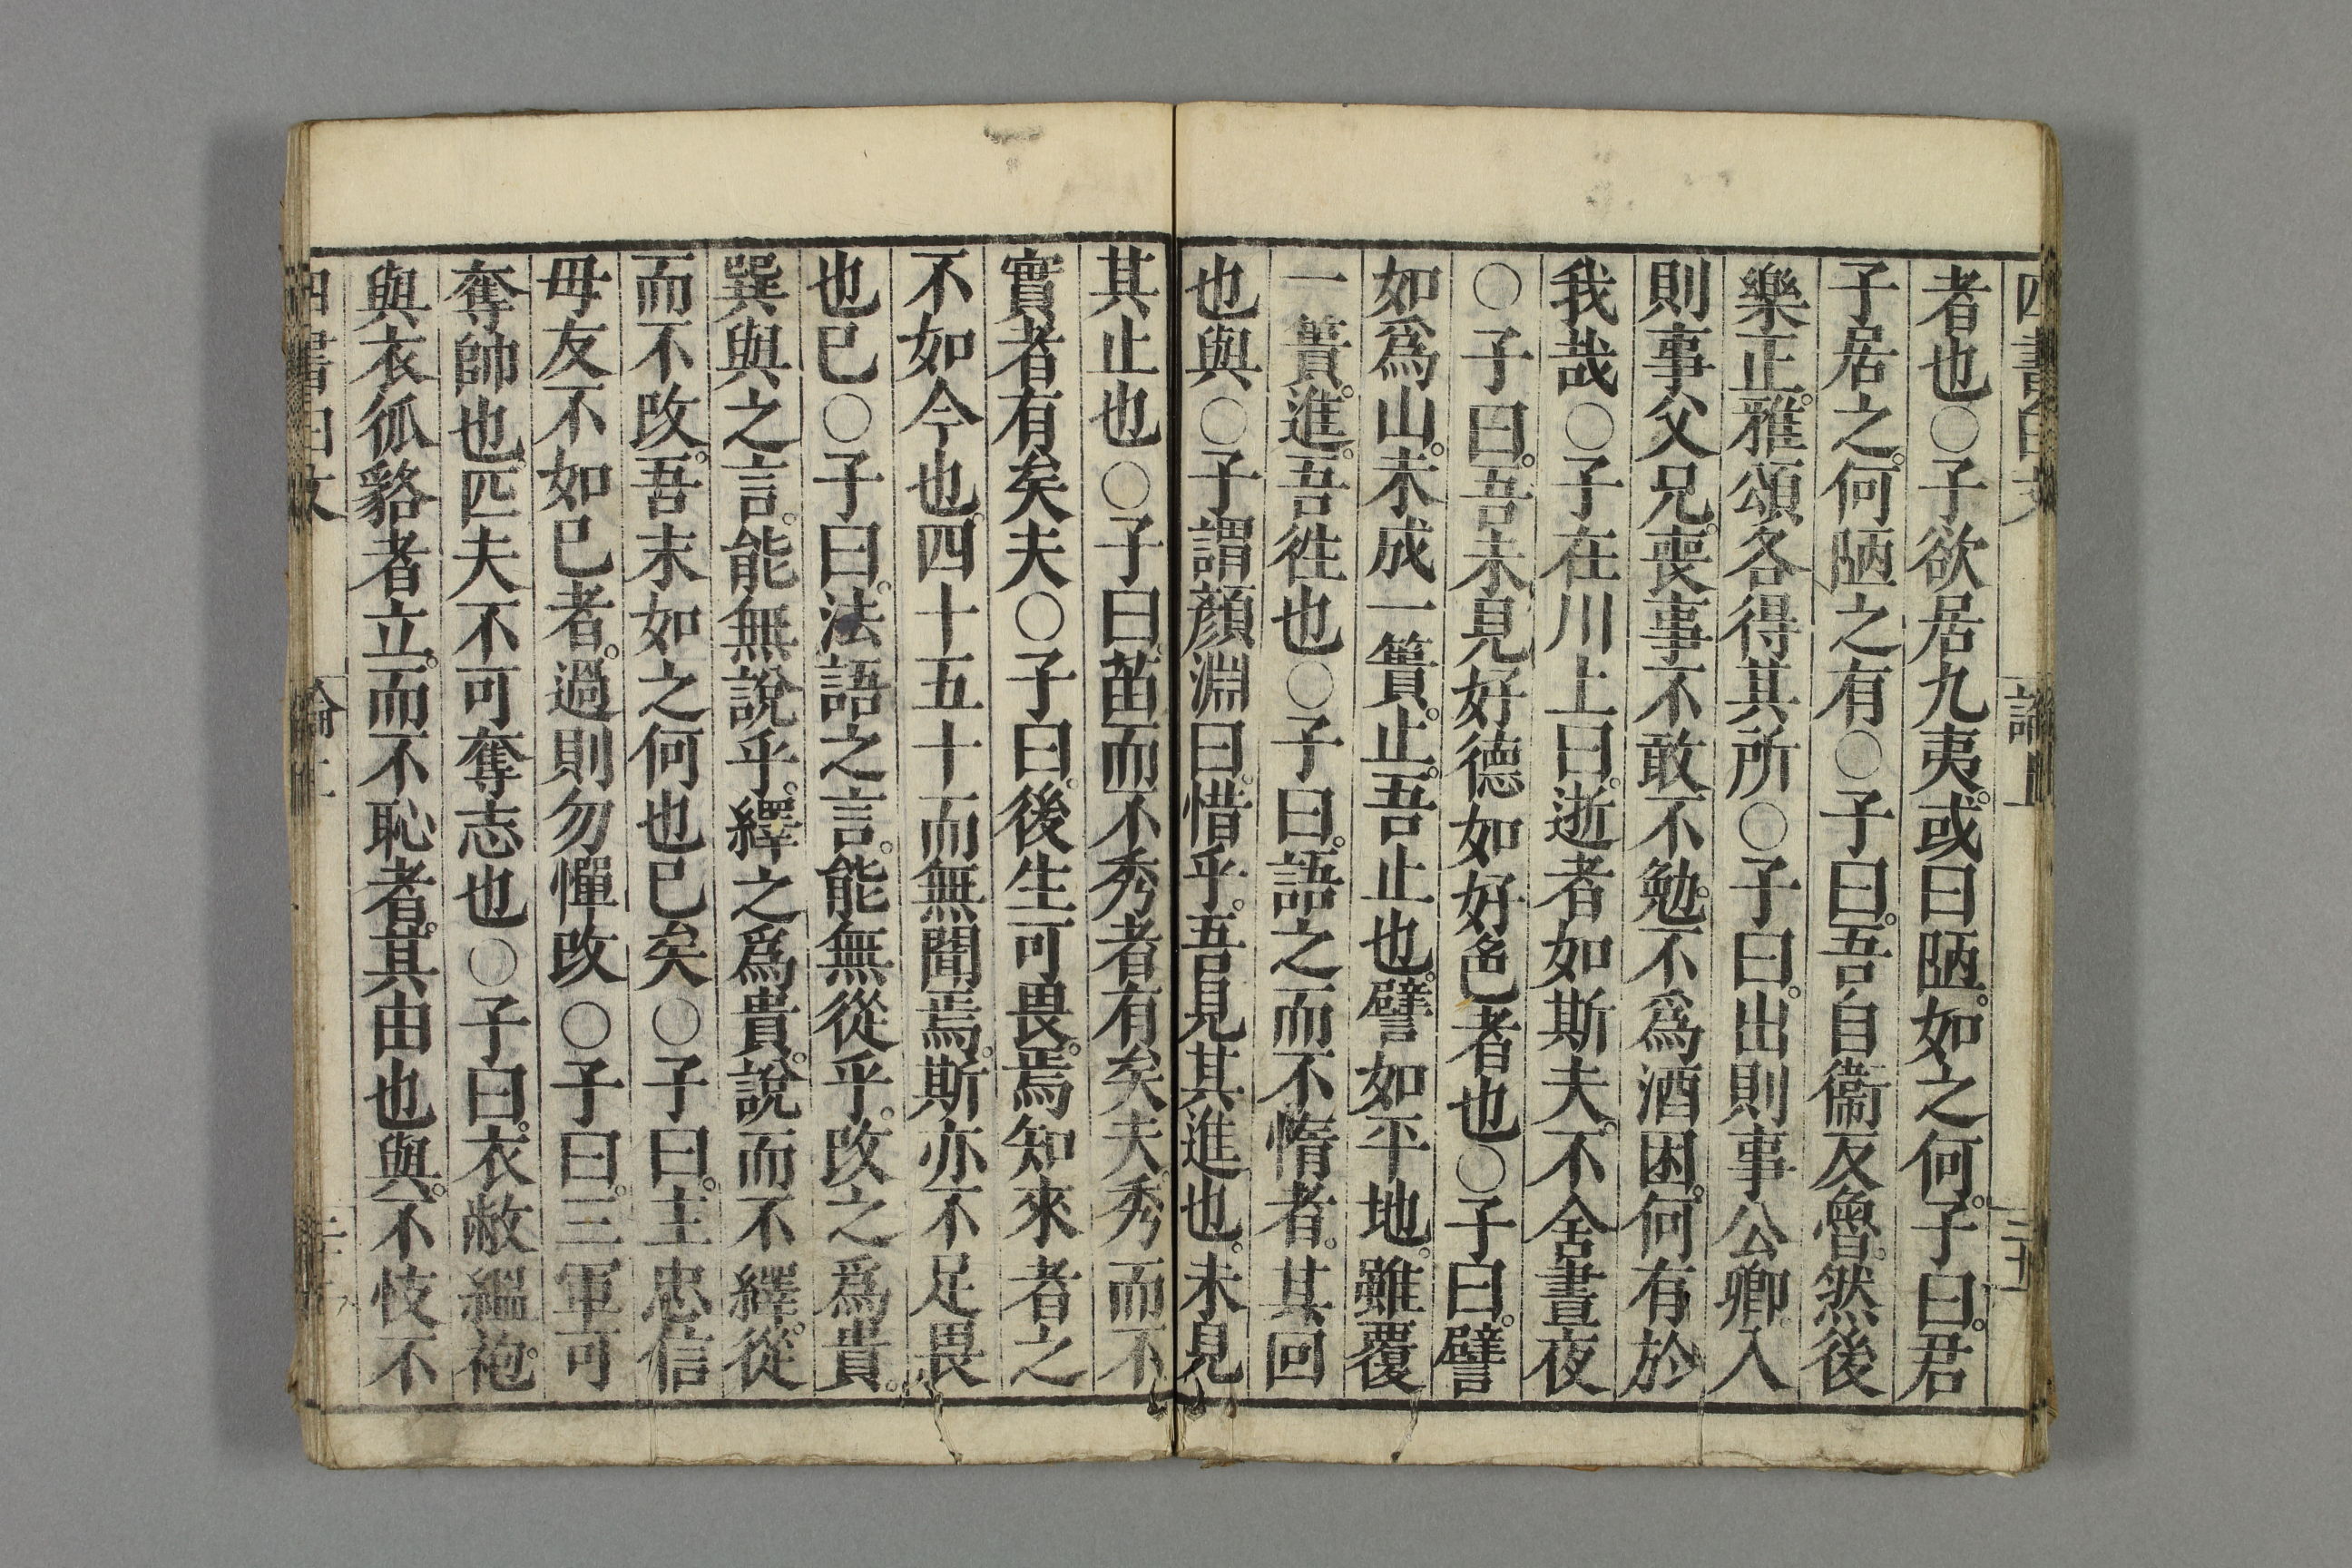 四書白文 論上 三十五
者也○子欲居九夷。或曰陋。如之何。子曰。君
子居之。何陋之有○子曰。吾自衞反魯。然後
樂正。雅頌各得其所○子曰。出則事公卿。入
則事父兄。喪事不敢不勉。不爲酒困。何有於
我哉○子在川上曰。逝者如斯夫。不舍晝夜
○子曰。吾未見好德如好色者也○子曰。譬
如爲山。未成一簣。止。吾止也。譬如平地。雖覆
一簣。進。吾徃也○子曰。語之而不惰者。其回
也與○子謂顏淵曰。惜乎。吾見其進也。未見
其止也○子曰。苗而不秀者有矣夫。秀而不
實者有矣夫○子曰。後生可畏。焉知來者之
不如今也。四十五十而無聞焉。斯亦不足畏
也已○子曰。法語之言。能無從乎。改之爲貴。
巽與之言。能無說乎。繹之爲貴。說而不繹。從
而不改。吾末如之何也已矣○子曰。主忠信
毋友不如已者。過則勿憚改○子曰。三軍可
奪帥也匹夫不可奪志也○子曰。衣敝縕袍。
與衣狐貉者立。而不恥者。其由也與。不忮不
四書白文 論上